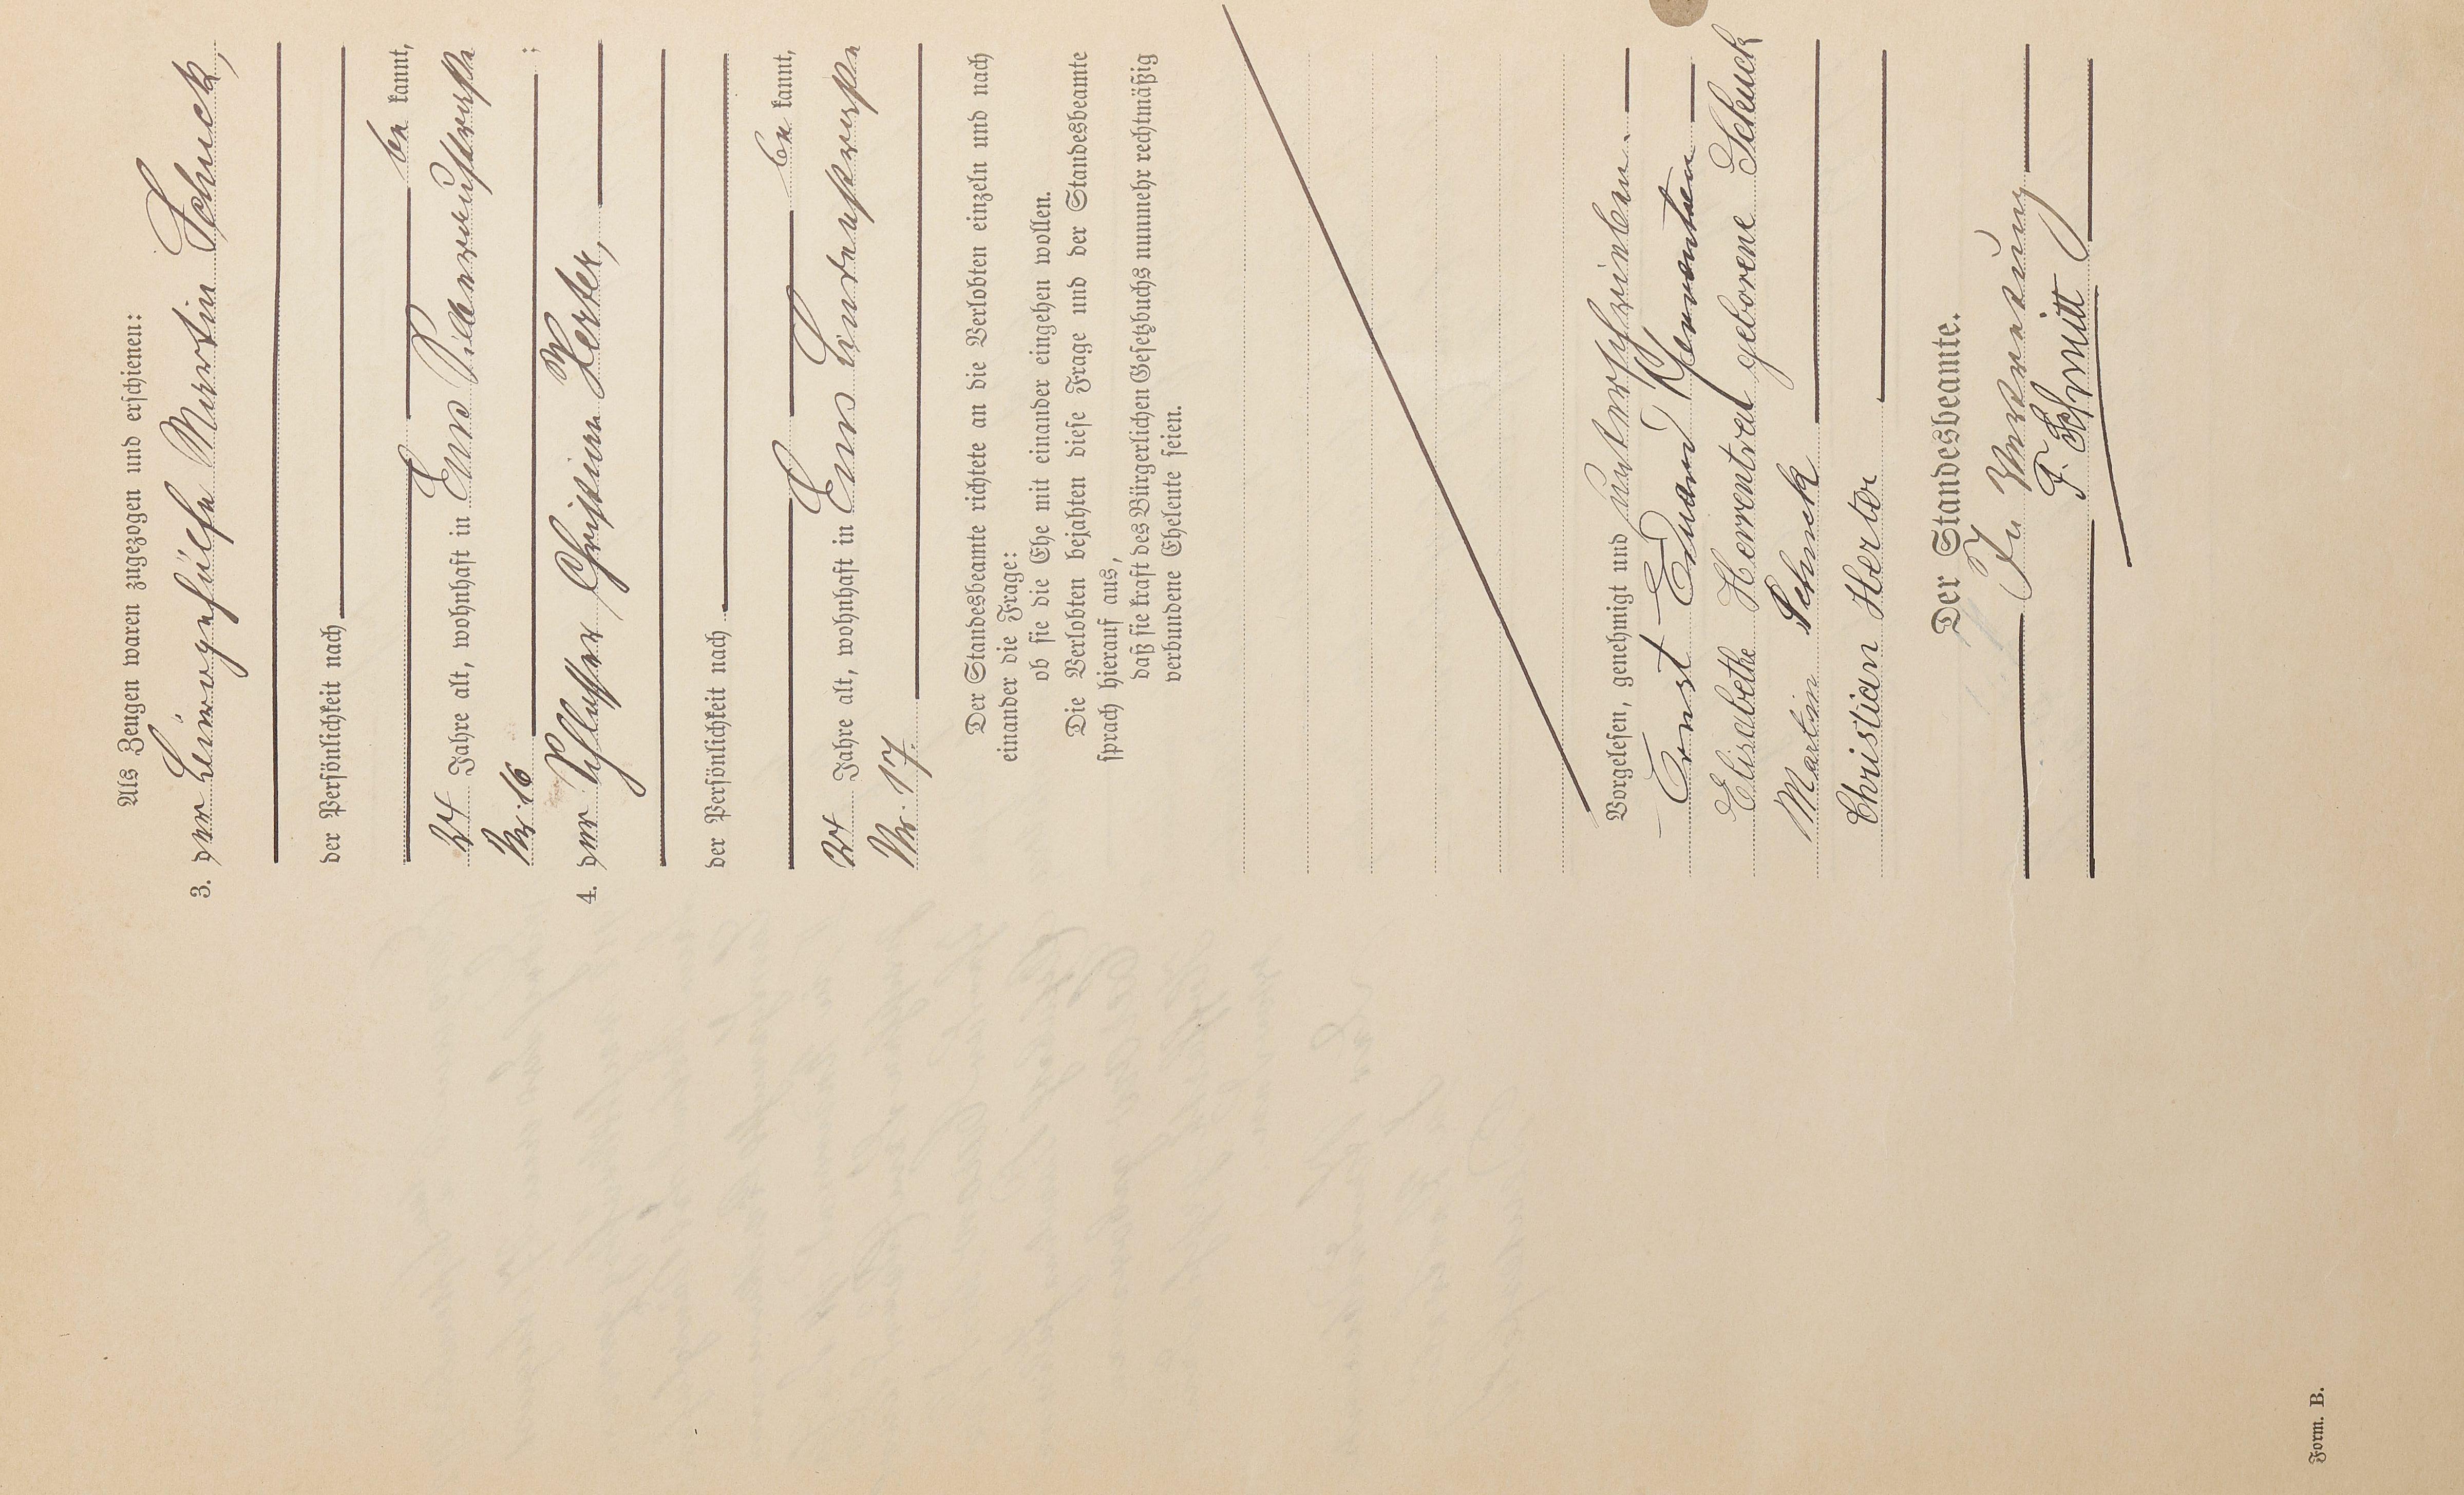 Als Zeugen waren zugezogen und erschienen:
3. der Bürogehülfe Martin Schuck,
der Persönlichkeit nach
be kannt,
24 Jahre alt, wohnhaft in Ems
Nr. 16 ;
4. der Schlosser Christian Herter,
der Persönlichkeit nach
be kannt,
24 Jahre alt, wohnhaft in Ems Lindenstraße
Nr. 17.
Der Standesbeamte richtete an die Verlobten einzeln und nach
einander die Frage:
ob sie die Ehe mit einander eingehen wollen.
Die Verlobten bejahten diese Frage und der Standesbeamte
sprach hierauf aus,
daß sie kraft des Bürgerlichen Gesetzbuchs nunmehr rechtmäßig
verbundene Eheleute seien.
Vorgelesen, genehmigt und unterschrieben.
Ernst Eduard
Elisabethe geborene Schuck
Martin Schuck
Christian Herter
Der Standesbeamte.
In Vertretung
F. Schmitt
Form. B.